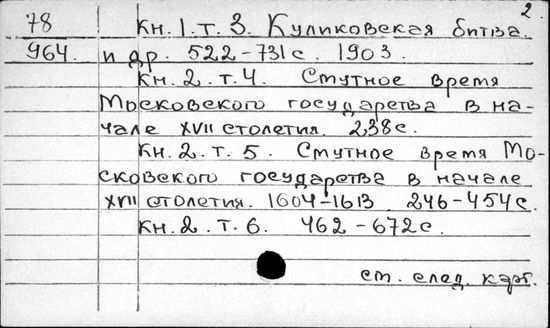 2.
78 Кн. 1. т. 3. Куликовская битва.
964. и др. 522-731с. 1903.
Кн. 2. т. 4. Смутное время
Московского государства в на-
чале XVII столетия. 238с.
Кн. 2. т. 5. Смутное время Мо-
сковского государства в начале
XVII столетия. 1604-1613 246-454с.
Кн. 2. т. 6. 462-672с.
см. след. карт.